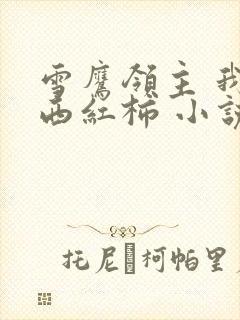 雪鹰領主 我
西紅柿 小說
托尼 柯帕里